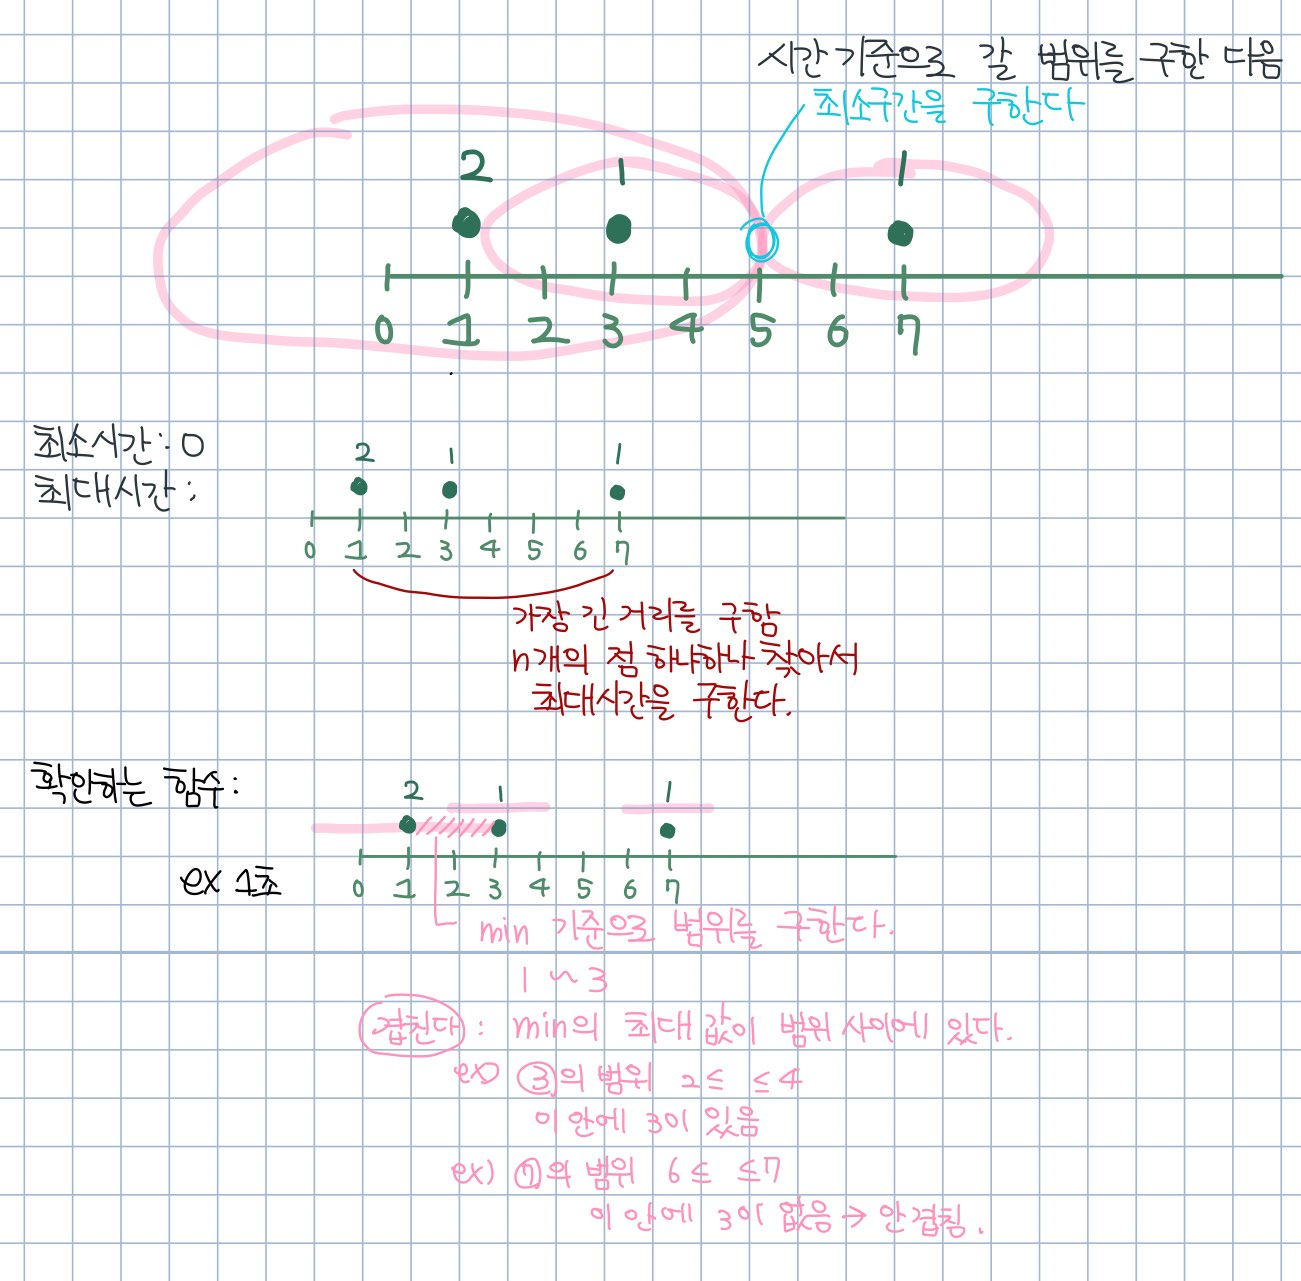 시간 기준으로 갈 범위를 구한 다음
최소구간을 구한다
2 1 1
0 1 2 3 4 5 6 7
최소시간: 0
최대시간:
2 1 1
0 1 2 3 4 5 6 7
가장 긴 거리를 구함
n개의 점 하나하나 찾아서
최대시간을 구한다.
확인하는 함수:
2 1 1
ex 1초
0 1 2 3 4 5 6 7
min 기준으로 범위를 구한다.
1 ~ 3
겹친다 : min의 최대 값이 범위 사이에 있다.
ex) ③의 범위 2≤ ≤4
이 안에 3이 있음
ex) ⑦의 범위 6≤ ≤7
이 안에 3이 없음 → 안겹침.